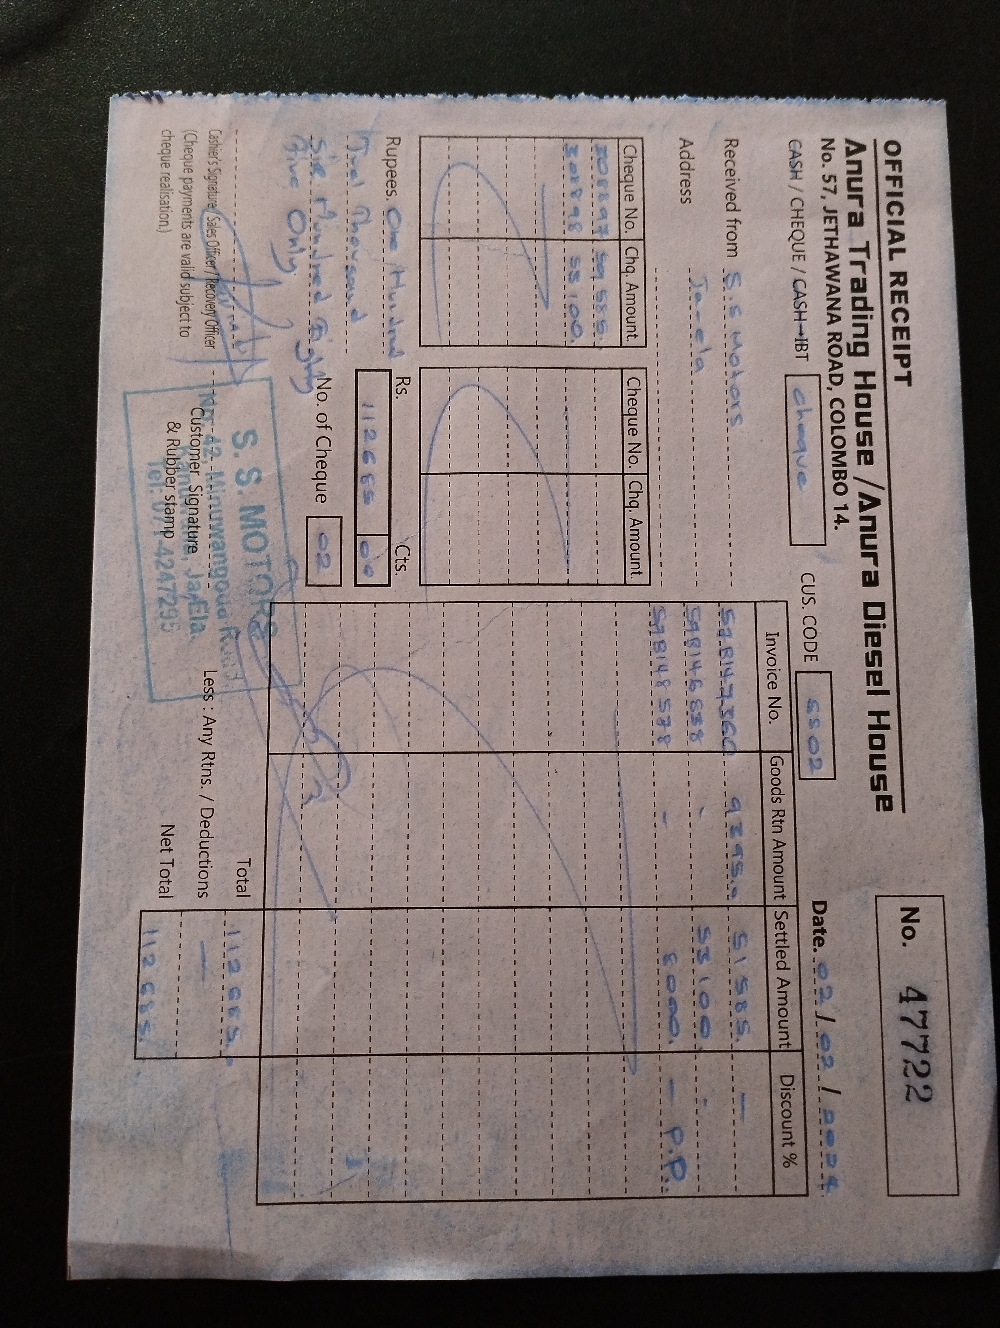 OFFICIAL RECEIPT
No. 47722
Anura Trading House / Anura Diesel House
No. 57, JETHAWANA ROAD, COLOMBO 14.
Date. 02 / 02 / 2024
CASH / CHEQUE / CASH→IBT Cheque
CUS. CODE SS02
Received from S.S Motors
Address Ja-ela
Cheque No. Chq. Amount Cheque No. Chq. Amount
59585.
55100.
Rupees. One Hundred
Thousand
Hundred Eighty
Five Only
Rs. Cts.
No. of Cheque 02
Invoice No. Goods Rtn Amount Settled Amount Discount %
9295. 51585. —
59B146838 - 53100. -
59B148578 - 8000. — P.P
Total 112685.
Less : Any Rtns. / Deductions —
Net Total 112685.
Cashier's Signature/ Sales Officer/ Recovery Officer
(Cheque payments are valid subject to
cheque realisation.)
Customer Signature
& Rubber stamp
S. S. MOTORS
No: 42, Minuwangoda Road,
Ja-Ela.
Tel: 071 4247295